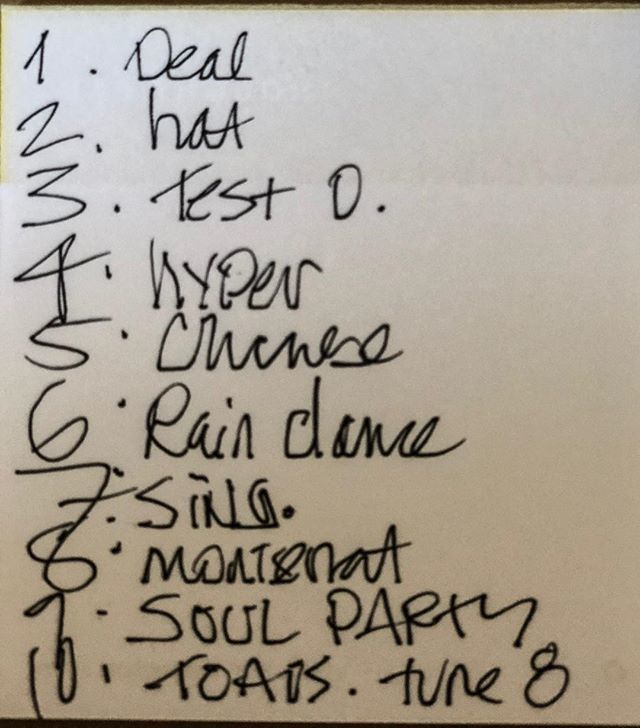 1. Deal
2. hat
3. test O.
4. hyper
5. Chinese
6. Rain dance
7. SING.
8. MONTSERRAT
9. SOUL PARTY
10. TOADS. tune 8